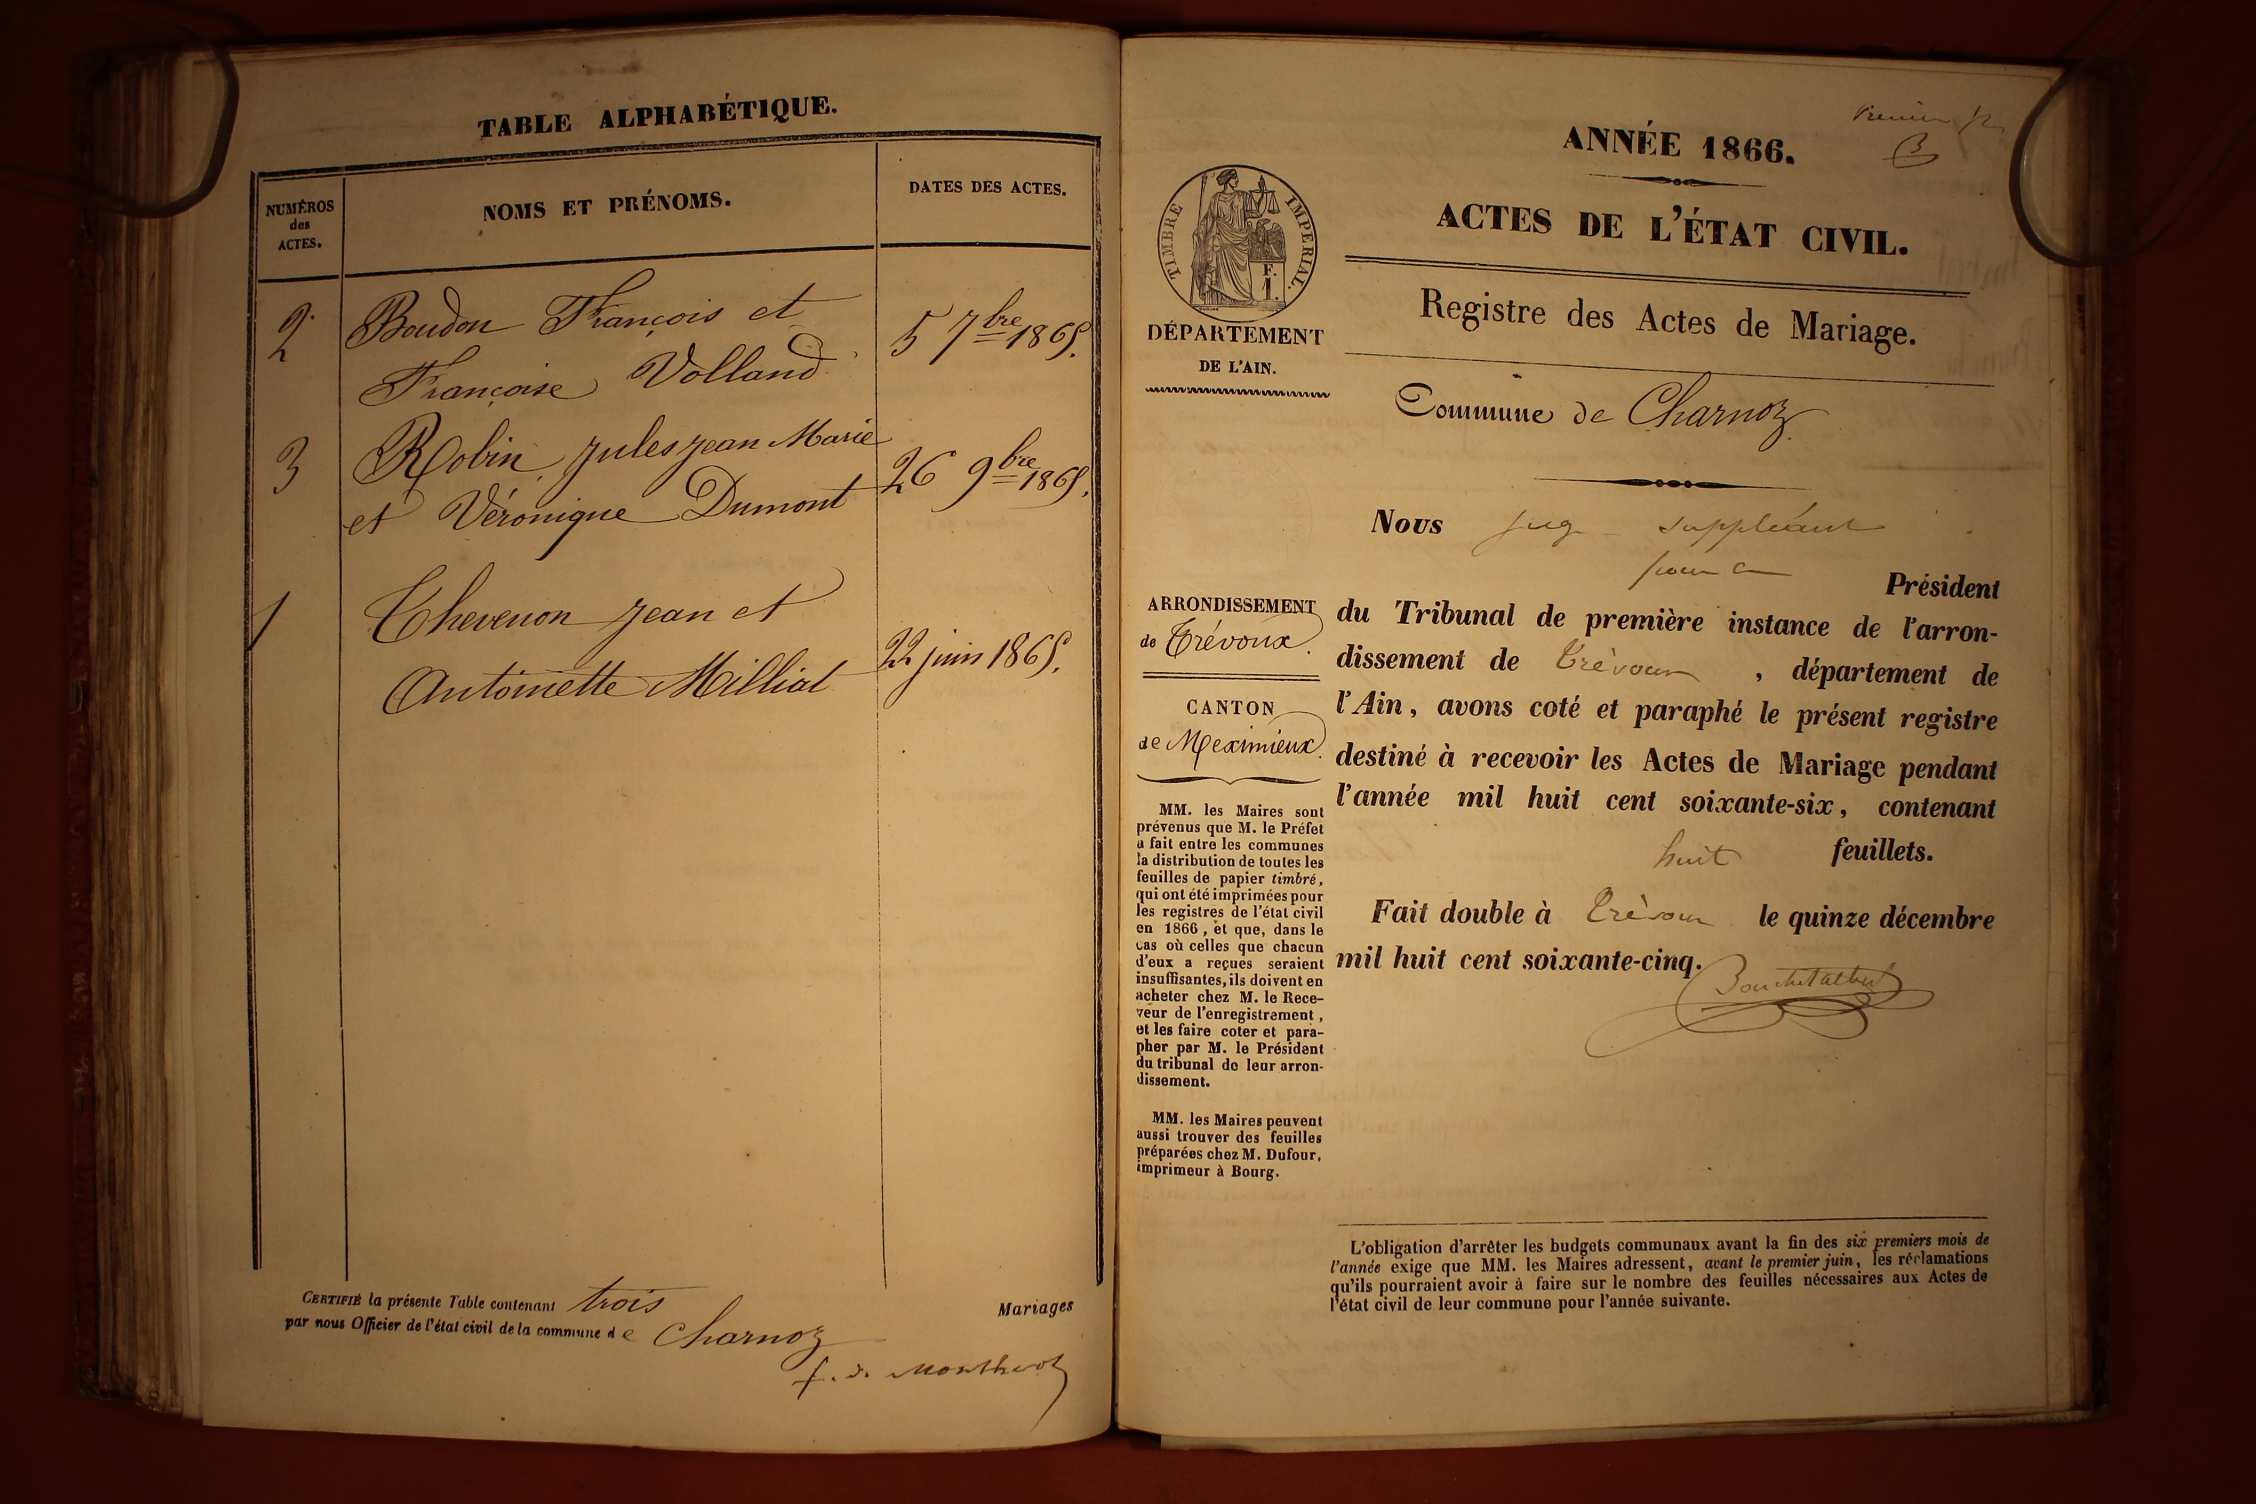 TABLE ALPHABÉTIQUE.
NUMÉROS
des
ACTES.
NOMS ET PRÉNOMS.
DATES DES ACTES.
2 Boudon François et
Françoise Volland
5 7bre 1865.
3 Robin Jules Jean Marie
et Véronique Dumont
26 9bre 1865.
1 Thevenon Jean et
Antoinette Milliat
22 juin 1865.
CERTIFIÉ la présente Table contenant trois Mariages
par nous Officier de l'état civil de la commune de Charnoz
f. de
ANNÉE 1866.
ACTES DE L'ÉTAT CIVIL.
TIMBRE IMPERIAL.
F.
1.
DÉPARTEMENT
DE L'AIN.
Registre des Actes de Mariage.
Commune de Charnoz
ARRONDISSEMENT
de Trévoux.
CANTON
de Meximieux.
MM. les Maires sont
prévenus que M. le Préfet
a fait entre les communes
la distribution de toutes les
feuilles de papier timbré,
qui ont été imprimées pour
les registres de l'état civil
en 1866, et que, dans le
cas où celles que chacun
d'eux a reçues seraient
insuffisantes, ils doivent en
acheter chez M. le Rece-
veur de l'enregistrement,
et les faire coter et para-
pher par M. le Président
du tribunal de leur arron-
dissement.
MM. les Maires peuvent
aussi trouver des feuilles
préparées chez M. Dufour,
imprimeur à Bourg.
Nous juge suppléant
pour
Président
du Tribunal de première instance de l'arron-
dissement de Trévoux, département de
l'Ain, avons coté et paraphé le présent registre
destiné à recevoir les Actes de Mariage pendant
l'année mil huit cent soixante-six, contenant
huit feuillets.
Fait double à Trévoux le quinze décembre
mil huit cent soixante-cinq.
L'obligation d'arrêter les budgets communaux avant la fin des six premiers mois de
l'année exige que MM. les Maires adressent, avant le premier juin, les réclamations
qu'ils pourraient avoir à faire sur le nombre des feuilles nécessaires aux Actes de
l'état civil de leur commune pour l'année suivante.